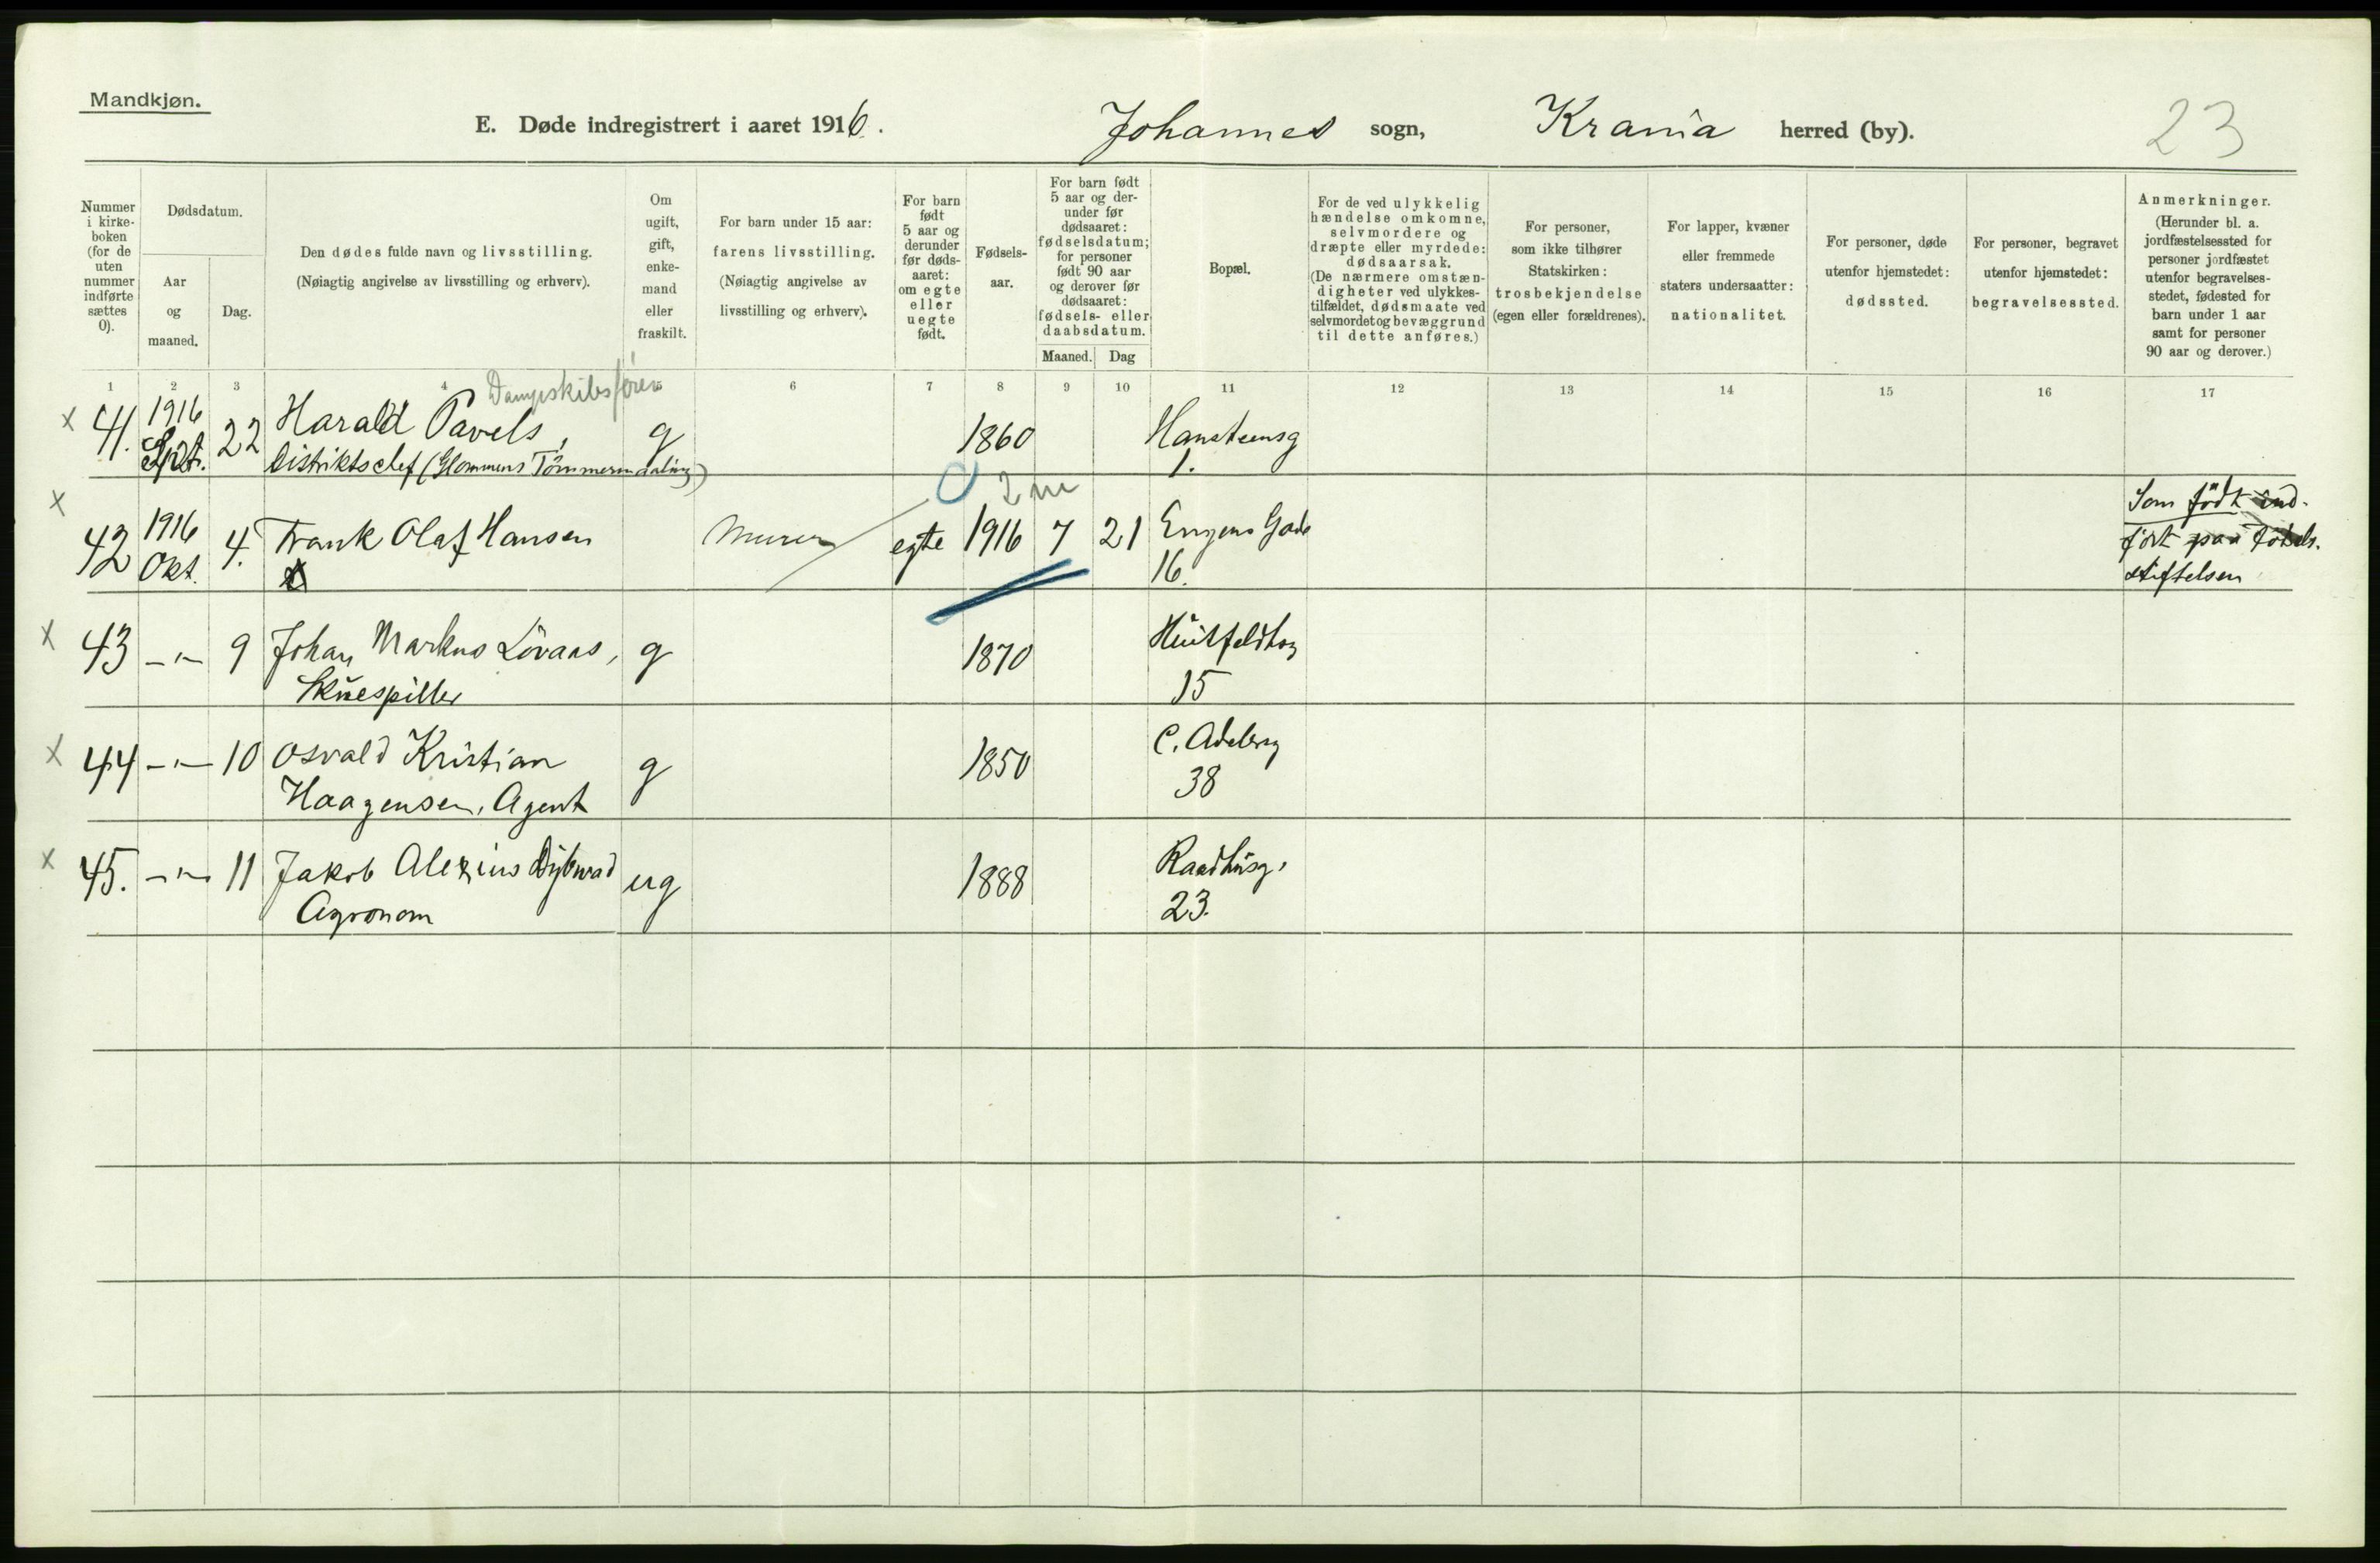 Mandkjøn.
E. Døde indregistrert i aaret 1916.
Johannes sogn, Krania herred (by).
23
Nummer i kirke-boken (for de uten nummer indførte sættes 0).
Dødsdatum.
Aar og maaned.
Dag.
Den dødes fulde navn og livsstilling.
(Nøiagtig angivelse av livsstilling og erhverv).
Om ugift, gift, enke-mand eller fraskilt.
For barn under 15 aar: farens livsstilling.
(Nøiagtig angivelse av livsstilling og erhverv).
For barn født 5 aar og derunder før døds-aaret: om egte eller uegte født.
Fødsels-aar.
For barn født 5 aar og der-under før dødsaaret: fødselsdatum; for personer født 90 aar og derover før dødsaaret: fødsels- eller daabsdatum.
Maaned. Dag
Bopæl.
For de ved ulykkelig hændelse omkomne, selvmordere og dræpte eller myrdede: dødsaarsak. (De nærmere omstæn-digheter ved ulykkes-tilfældet, dødsmaate ved selvmordet og bevæggrund til dette anføres.)
For personer, som ikke tilhører Statskirken: trosbekjendelse (egen eller forældrenes).
For lapper, kvæner eller fremmede staters undersaatter: nationalitet.
For personer, døde utenfor hjemstedet: dødssted.
For personer, begravet utenfor hjemstedet: begravelsessted.
Anmerkninger.
(Herunder bl. a. jordfæstelsessted for personer jordfæstet utenfor begravelses-stedet, fødested for barn under 1 aar samt for personer 90 aar og derover.)
1 2 3 4 5 6 7 8 9 10 11 12 13 14 15 16 17
Dampskibsfører
x 41. 1916 Spt. 22 Harald Pavels, g 1860 Hansteensg
Distriktschef (Glommens Tömmermaaling) 1.
2 m
x 42 1916 Okt. 4. Frank Olaf Hansen Murer egte 1916 7 21 Eugens Gade
16.
Som födt ind-
fört paa Födsls.
stiftelsen
x 43 -"- 9 Johan Markus Lövaas, g 1870 Huitfeldtsg
Skuespiller 15
x 44 -"- 10 Osvald Kristian g 1850 C. Adelersg
Haagensen, Agent 38
x 45. -"- 11 Jakob Alexius Dybwad ug 1888 Raadhusg.
Agronom 23.